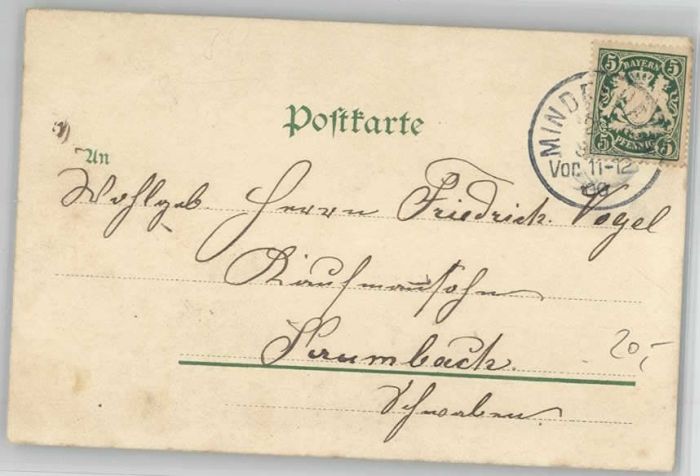 Postkarte
5 BAYERN 5
5 PFENNIG 5
MINDE
Vor. 11-12
An
Wohlgeb. Herrn Friedrich Vogel
Kaufmannssohn
Krumbach.
Schwaben.
20,-